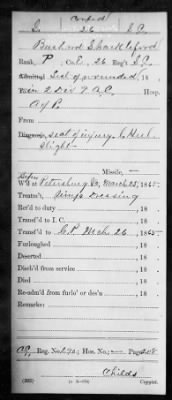 Confed
S 26 S.C.
Burbird Shackleford
Rank, P Co. C, 26 Reg't S.C.
Admitted List of wounded, 18
in 2 Div 9 A.C. Hosp.
A of P.
From
Diagnosis, seat of injury, Heel
slight
Missile, —
W'd at Petersburg Va, March 25, 1865.
Treatm't, Simple Dressing
Ret'd to duty , 18 .
Transf'd to I. C. , 18 .
Transf'd to C.P. Mch. 26 , 1865.
Furloughed , 18 .
Deserted , 18 .
Disch'd from service , 18 .
Died , 18 .
Re-adm'd from furlo' or des'n , 18 .
Remarks:
Reg. No. ; Hos. No. — Page
Childs
Copyist.